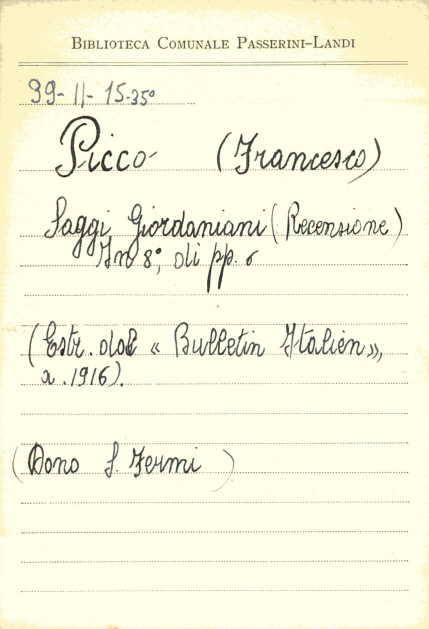 BIBLIOTECA COMUNALE PASSERINI-LANDI
39-II-15-35°
Picco (Francesco)
Saggi Giordaniani (Recensione)
In 8°, di pp. 6
(Estr. dal « Bulletin Italien »,
a. 1916).
(Dono S. Fermi)